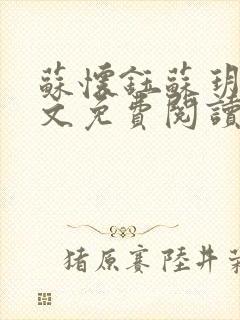 蘇懷鈺蘇玥
文免費閱讀
猪原赛陸井